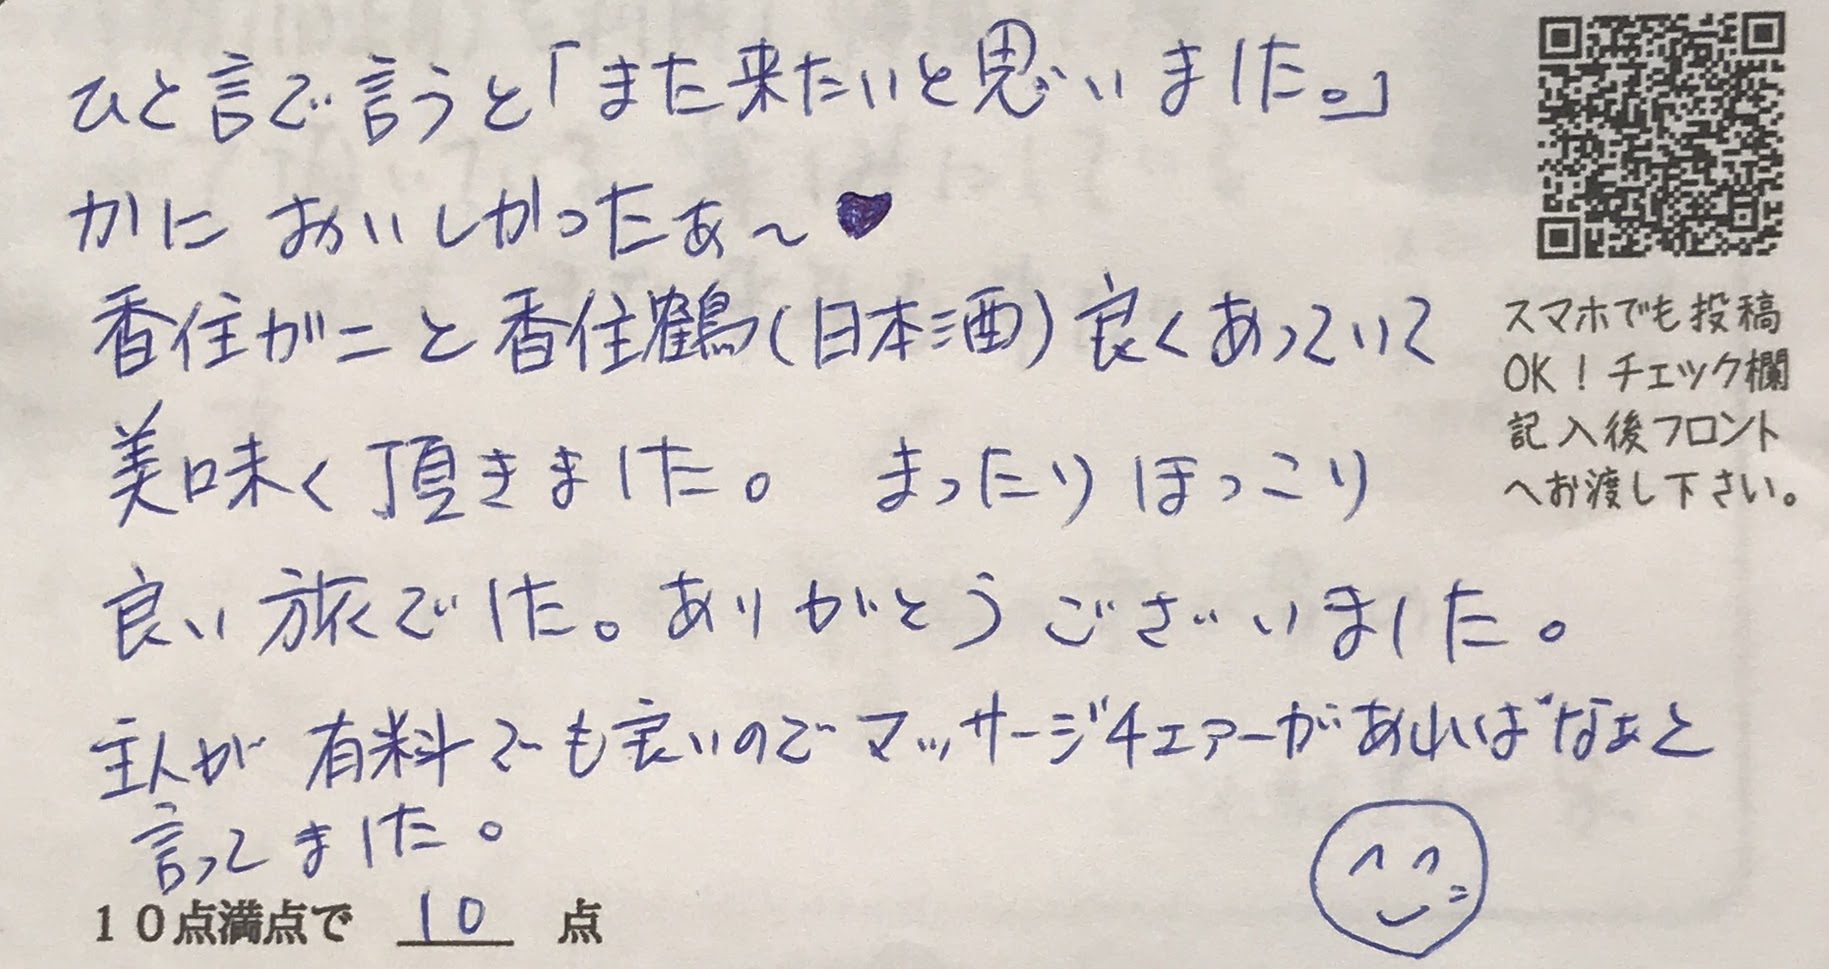 ひと言で言うと「また来たいと思いました。」
かに おいしかったぁ〜♥
香住がニと香住鶴(日本酒)良くあっていて
美味く頂きました。 まったりほっこり
良い旅でした。ありがとうございました。
主人が有料でも良いのでマッサージチェアーがあればなぁと
言ってました。
10点満点で 10 点
スマホでも投稿
OK！チェック欄
記入後フロント
へお渡し下さい。